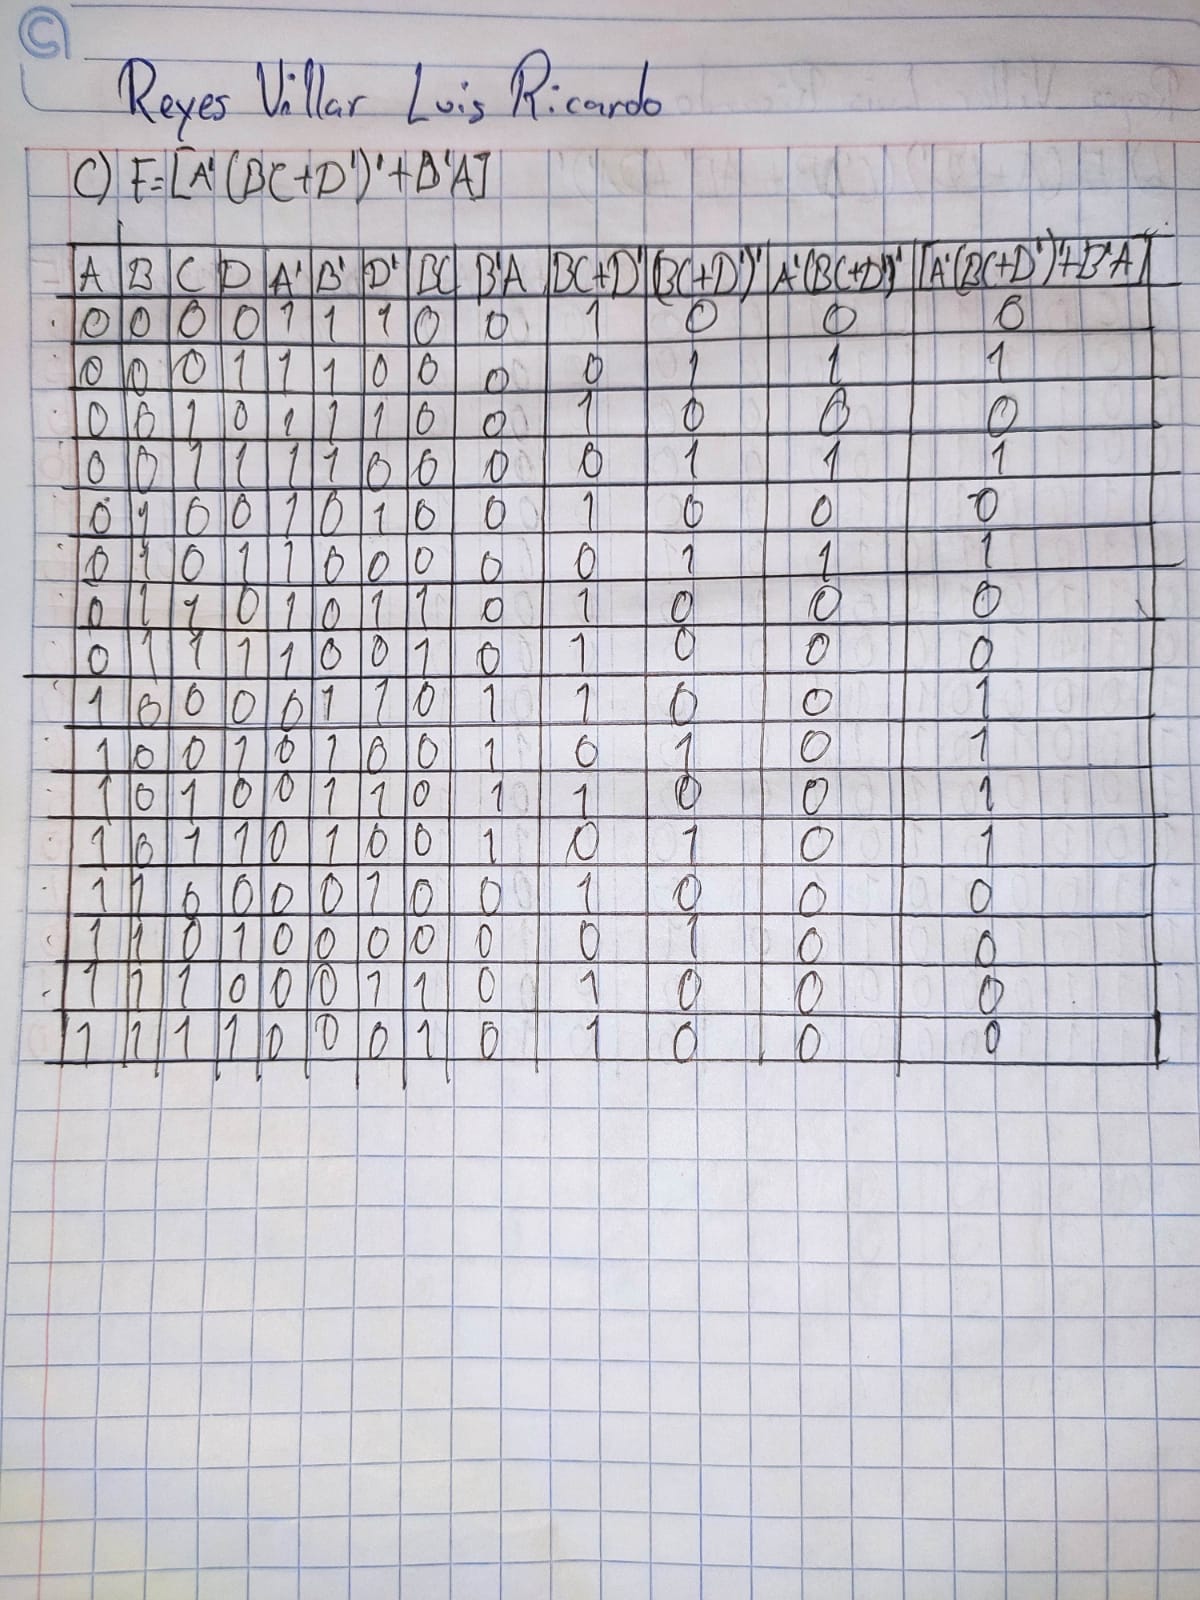 C)
Reyes Villar Luis Ricardo
C) F=[A'(BC+D')'+B'A]
A B C D A' B' D' BC B'A BC+D' (BC+D')' A'(BC+D')' [A'(BC+D')'+B'A]
0 0 0 0 1 1 1 0 0 1 0 0 0
0 0 0 1 1 1 0 0 0 0 1 1 1
0 0 1 0 1 1 1 0 0 1 0 0 0
0 0 1 1 1 1 0 0 0 0 1 1 1
0 1 0 0 1 0 1 0 0 1 0 0 0
0 1 0 1 1 0 0 0 0 0 1 1 1
0 1 1 0 1 0 1 1 0 1 0 0 0
0 1 1 1 1 0 0 1 0 1 0 0 0
1 0 0 0 0 1 1 0 1 1 0 0 1
1 0 0 1 0 1 0 0 1 0 1 0 1
1 0 1 0 0 1 1 0 1 1 0 0 1
1 0 1 1 0 1 0 0 1 0 1 0 1
1 1 0 0 0 0 1 0 0 1 0 0 0
1 1 0 1 0 0 0 0 0 0 1 0 0
1 1 1 0 0 0 1 1 0 1 0 0 0
1 1 1 1 0 0 0 1 0 1 0 0 0